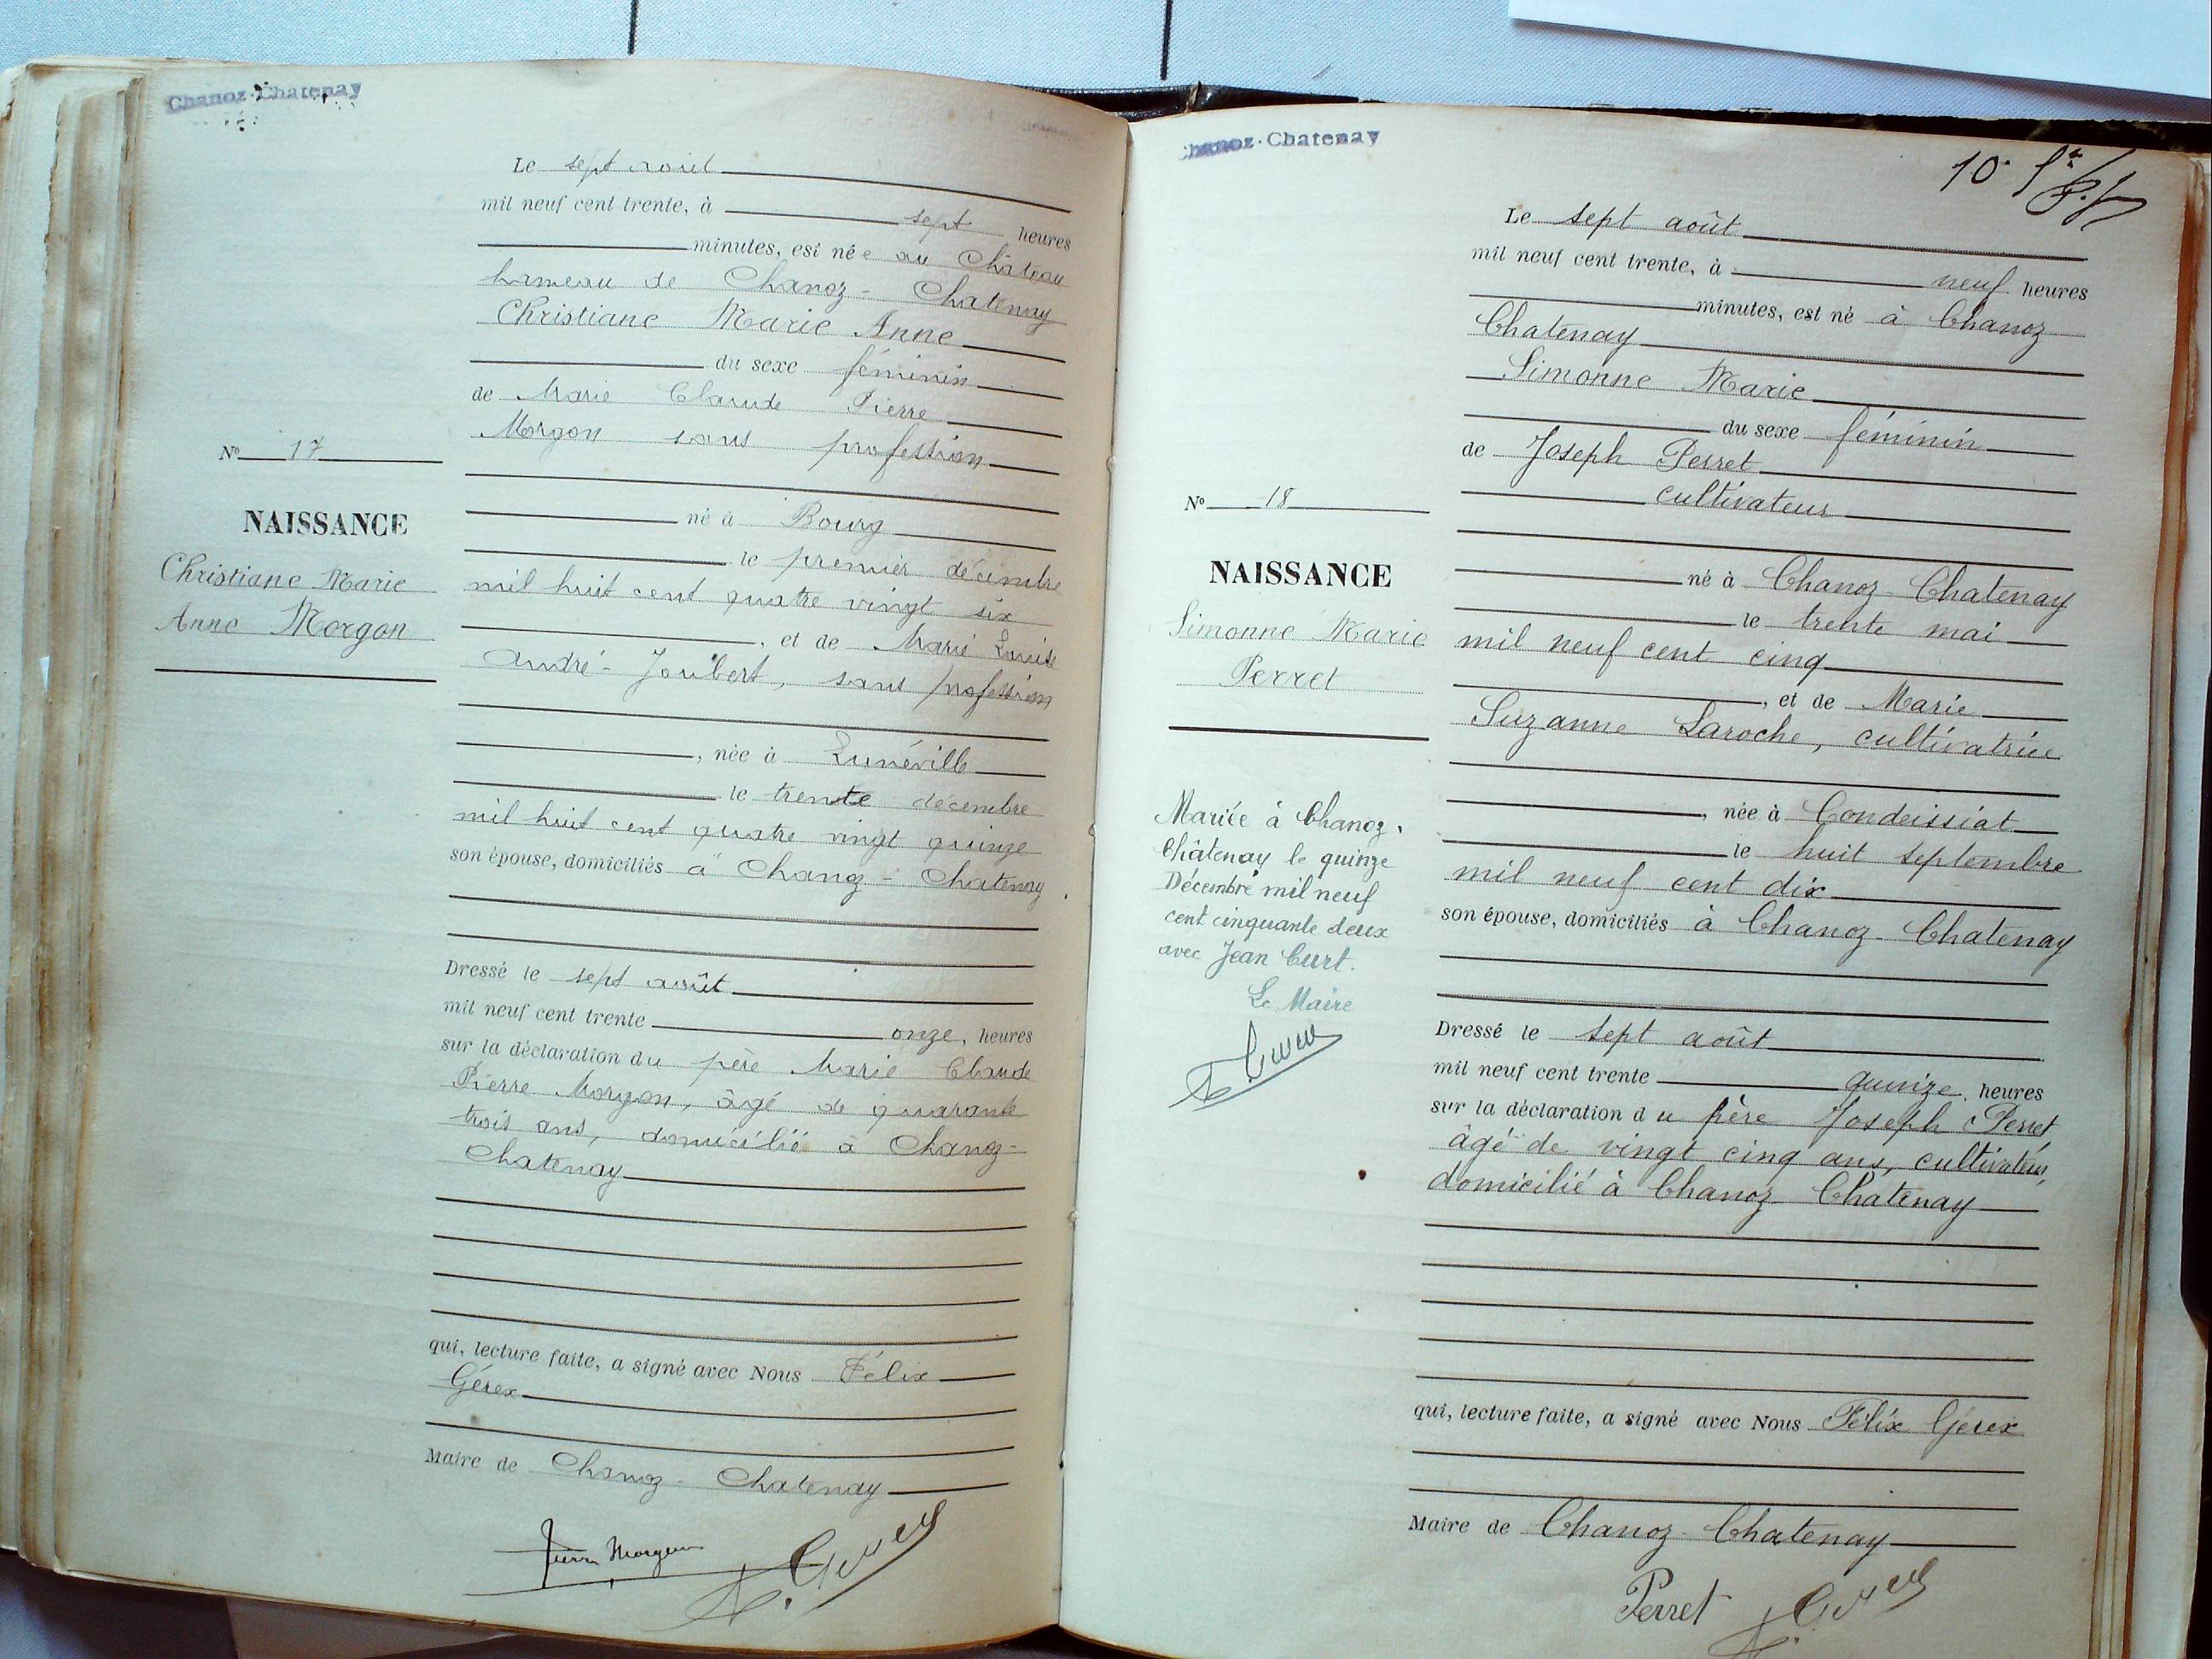 Chanoz-Chatenay
Le sept aout
mil neuf cent trente, à sept heures
minutes, est née au Château
hameau de Chanoz-Chatenay
Christiane Marie Anne
du sexe féminin
de Marie Claude Pierre
Morgon sans profession
né à Bourg
le premier décembre
mil huit cent quatre vingt six
, et de Marie Louise
André-Joubert, sans profession
, née à Lunéville
le trente décembre
mil huit cent quatre vingt quinze
son épouse, domiciliés à Chanoz-Chatenay
Dressé le sept août
mil neuf cent trente onze, heures
sur la déclaration du père Marie Claude
Pierre Morgon, âgé de quarante
trois ans, domicilié à Chanoz-
Chatenay
qui, lecture faite, a signé avec Nous Félix
Gérex
Maire de Chanoz-Chatenay
Pierre Morgon
No 17
NAISSANCE
Christiane Marie
Anne Morgon
Chanoz-Chatenay
10
Le sept août
mil neuf cent trente, à neuf heures
minutes, est né à Chanoz
Chatenay
Simonne Marie
du sexe féminin
de Joseph Perret
cultivateur
né à Chanoz-Chatenay
le trente mai
mil neuf cent cinq
, et de Marie
Suzanne Laroche, cultivatrice
, née à Condeissiat
le huit septembre
mil neuf cent dix
son épouse, domiciliés à Chanoz-Chatenay
Dressé le sept août
mil neuf cent trente quinze, heures
sur la déclaration du père Joseph Perret
âgé de vingt cinq ans, cultivateur,
domicilié à Chanoz Chatenay
qui, lecture faite, a signé avec Nous Félix Gérex
Maire de Chanoz-Chatenay
Perret
No 18
NAISSANCE
Simonne Marie
Perret
Mariée à Chanoz-
Châtenay le quinze
Décembre mil neuf
cent cinquante deux
avec Jean Curt.
Le Maire